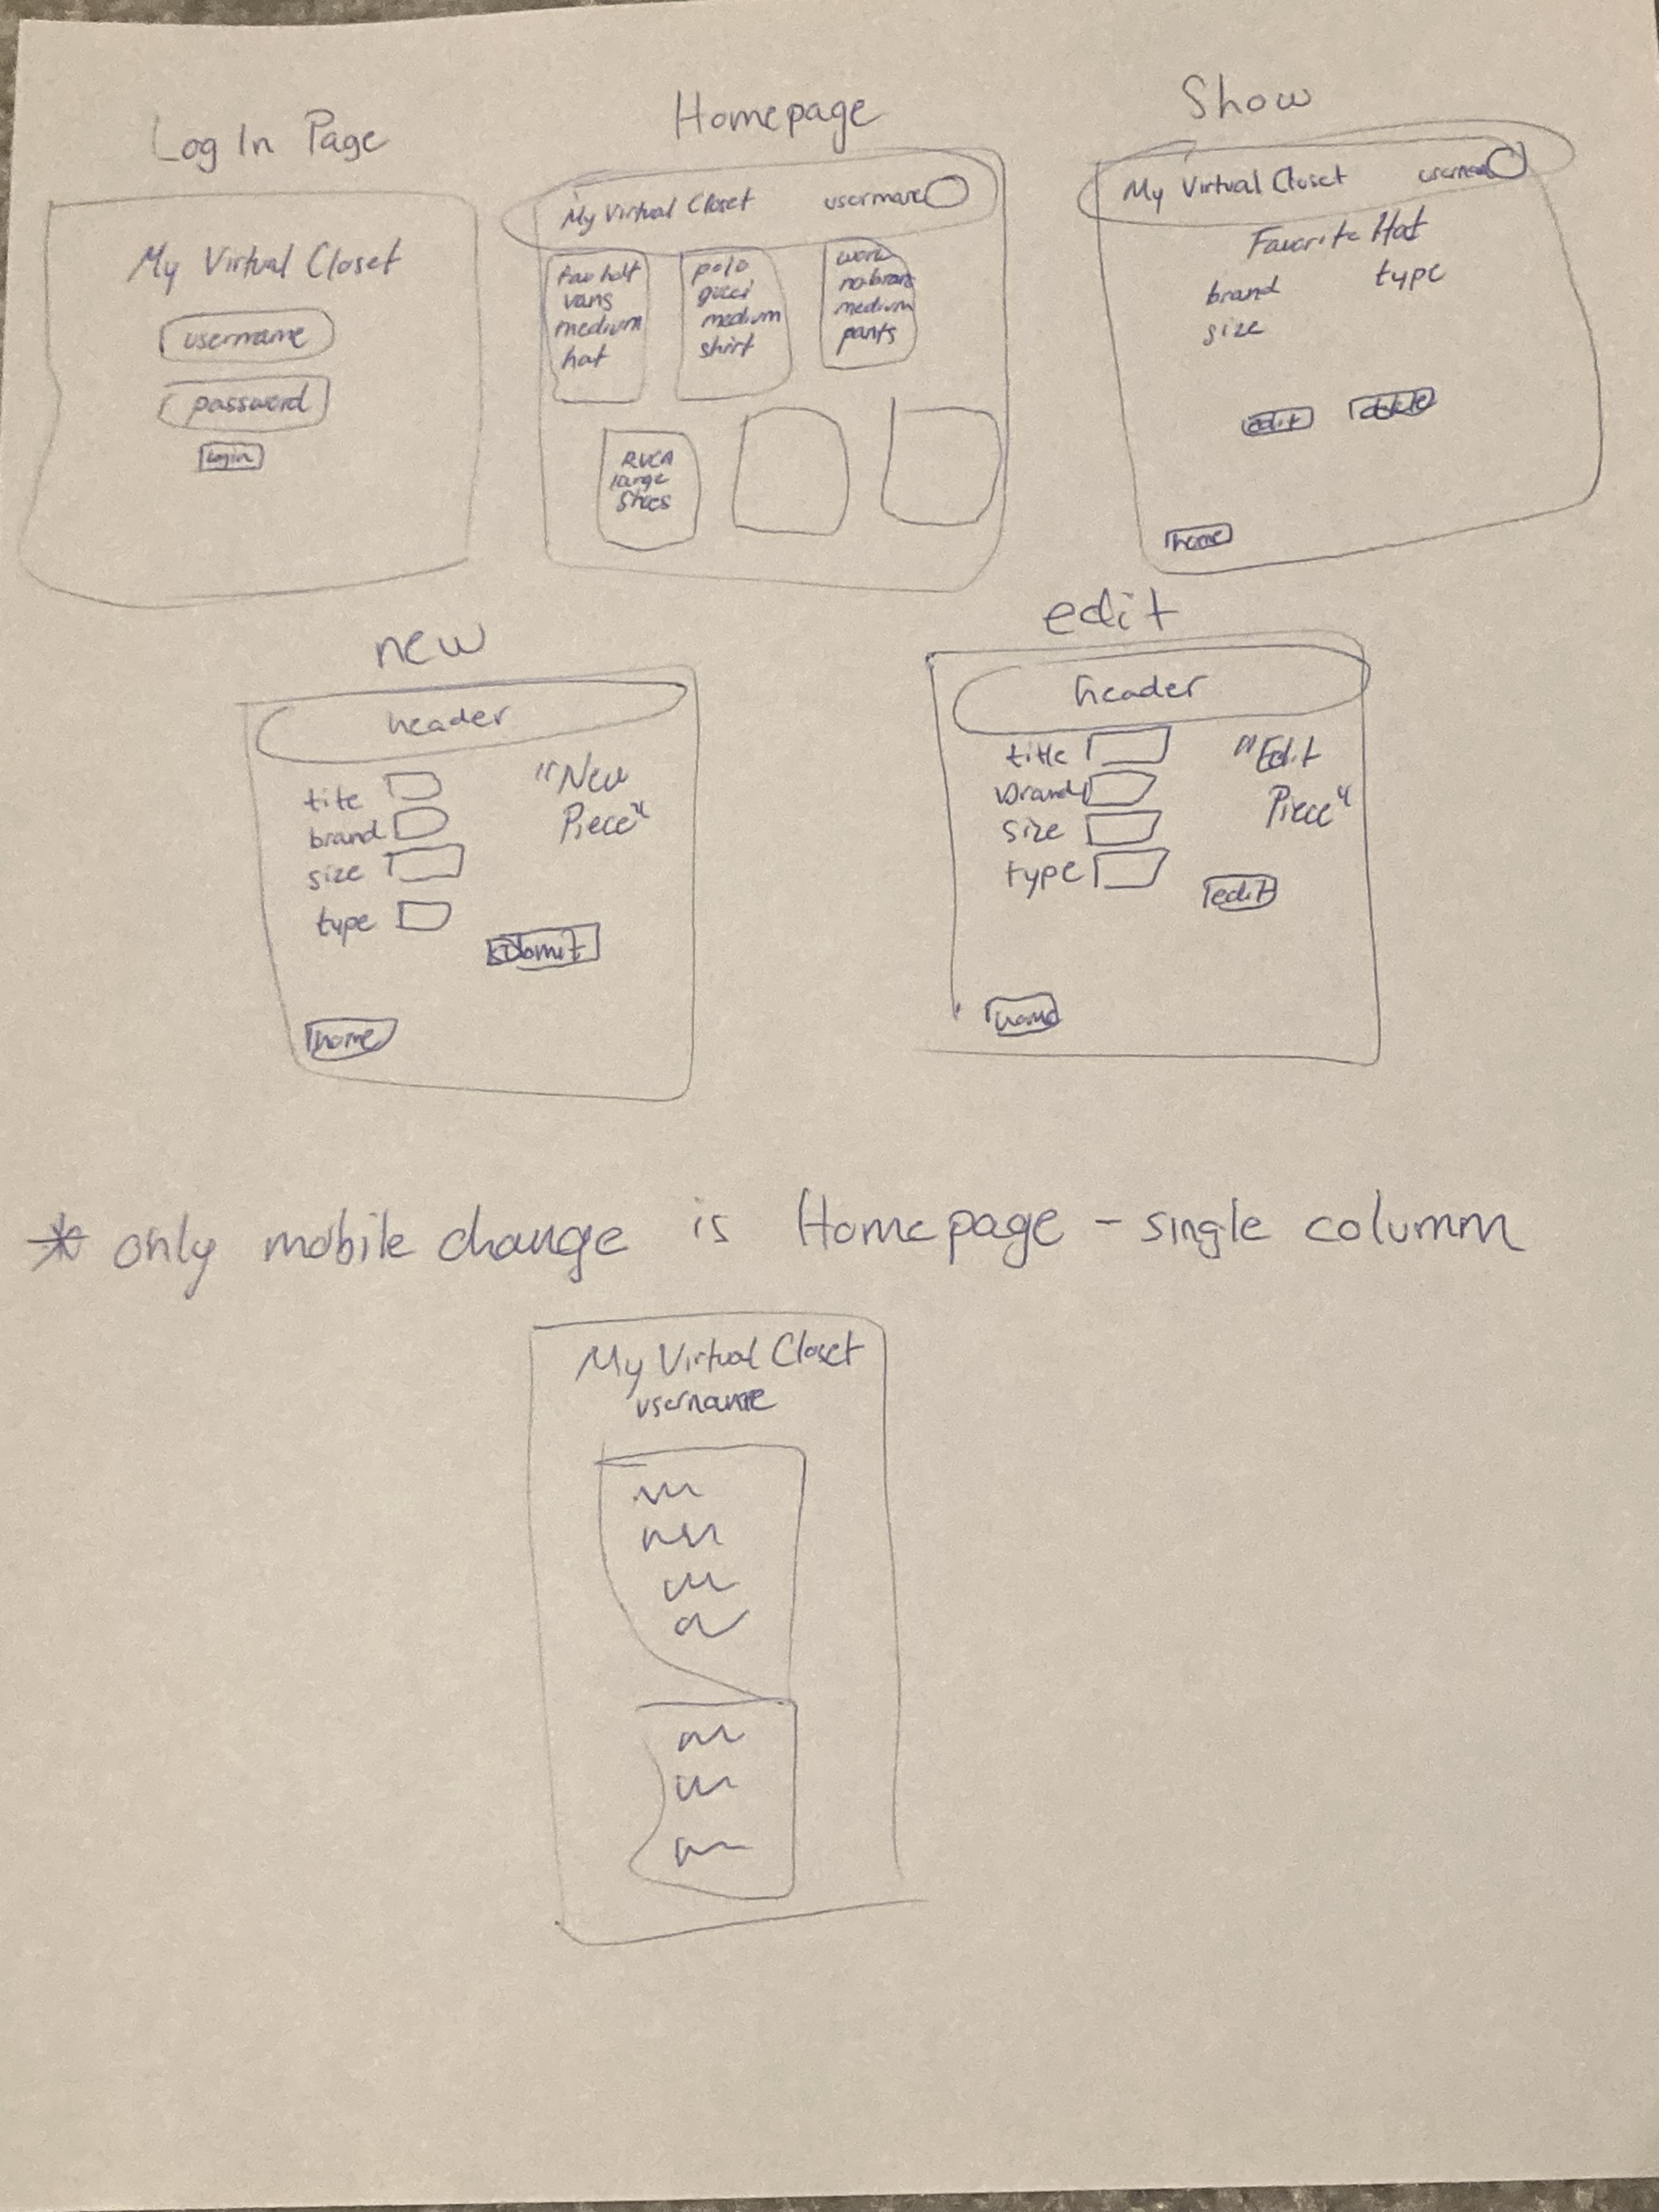 Log In Page
My Virtual Closet
username
password
login
Homepage
My Virtual Closet username
fav hat
vans
medium
hat
polo
gucci
medium
shirt
work
no brand
medium
pants
RVCA
large
shoes
Show
My Virtual Closet username
Favorite Hat
brand type
size
edit delete
home
new
header
title
brand
size
type
"New
Piece"
submit
home
edit
header
title
brand
size
type
"Edit
Piece"
edit
home
* only mobile change is Homepage - single column
My Virtual Closet
username